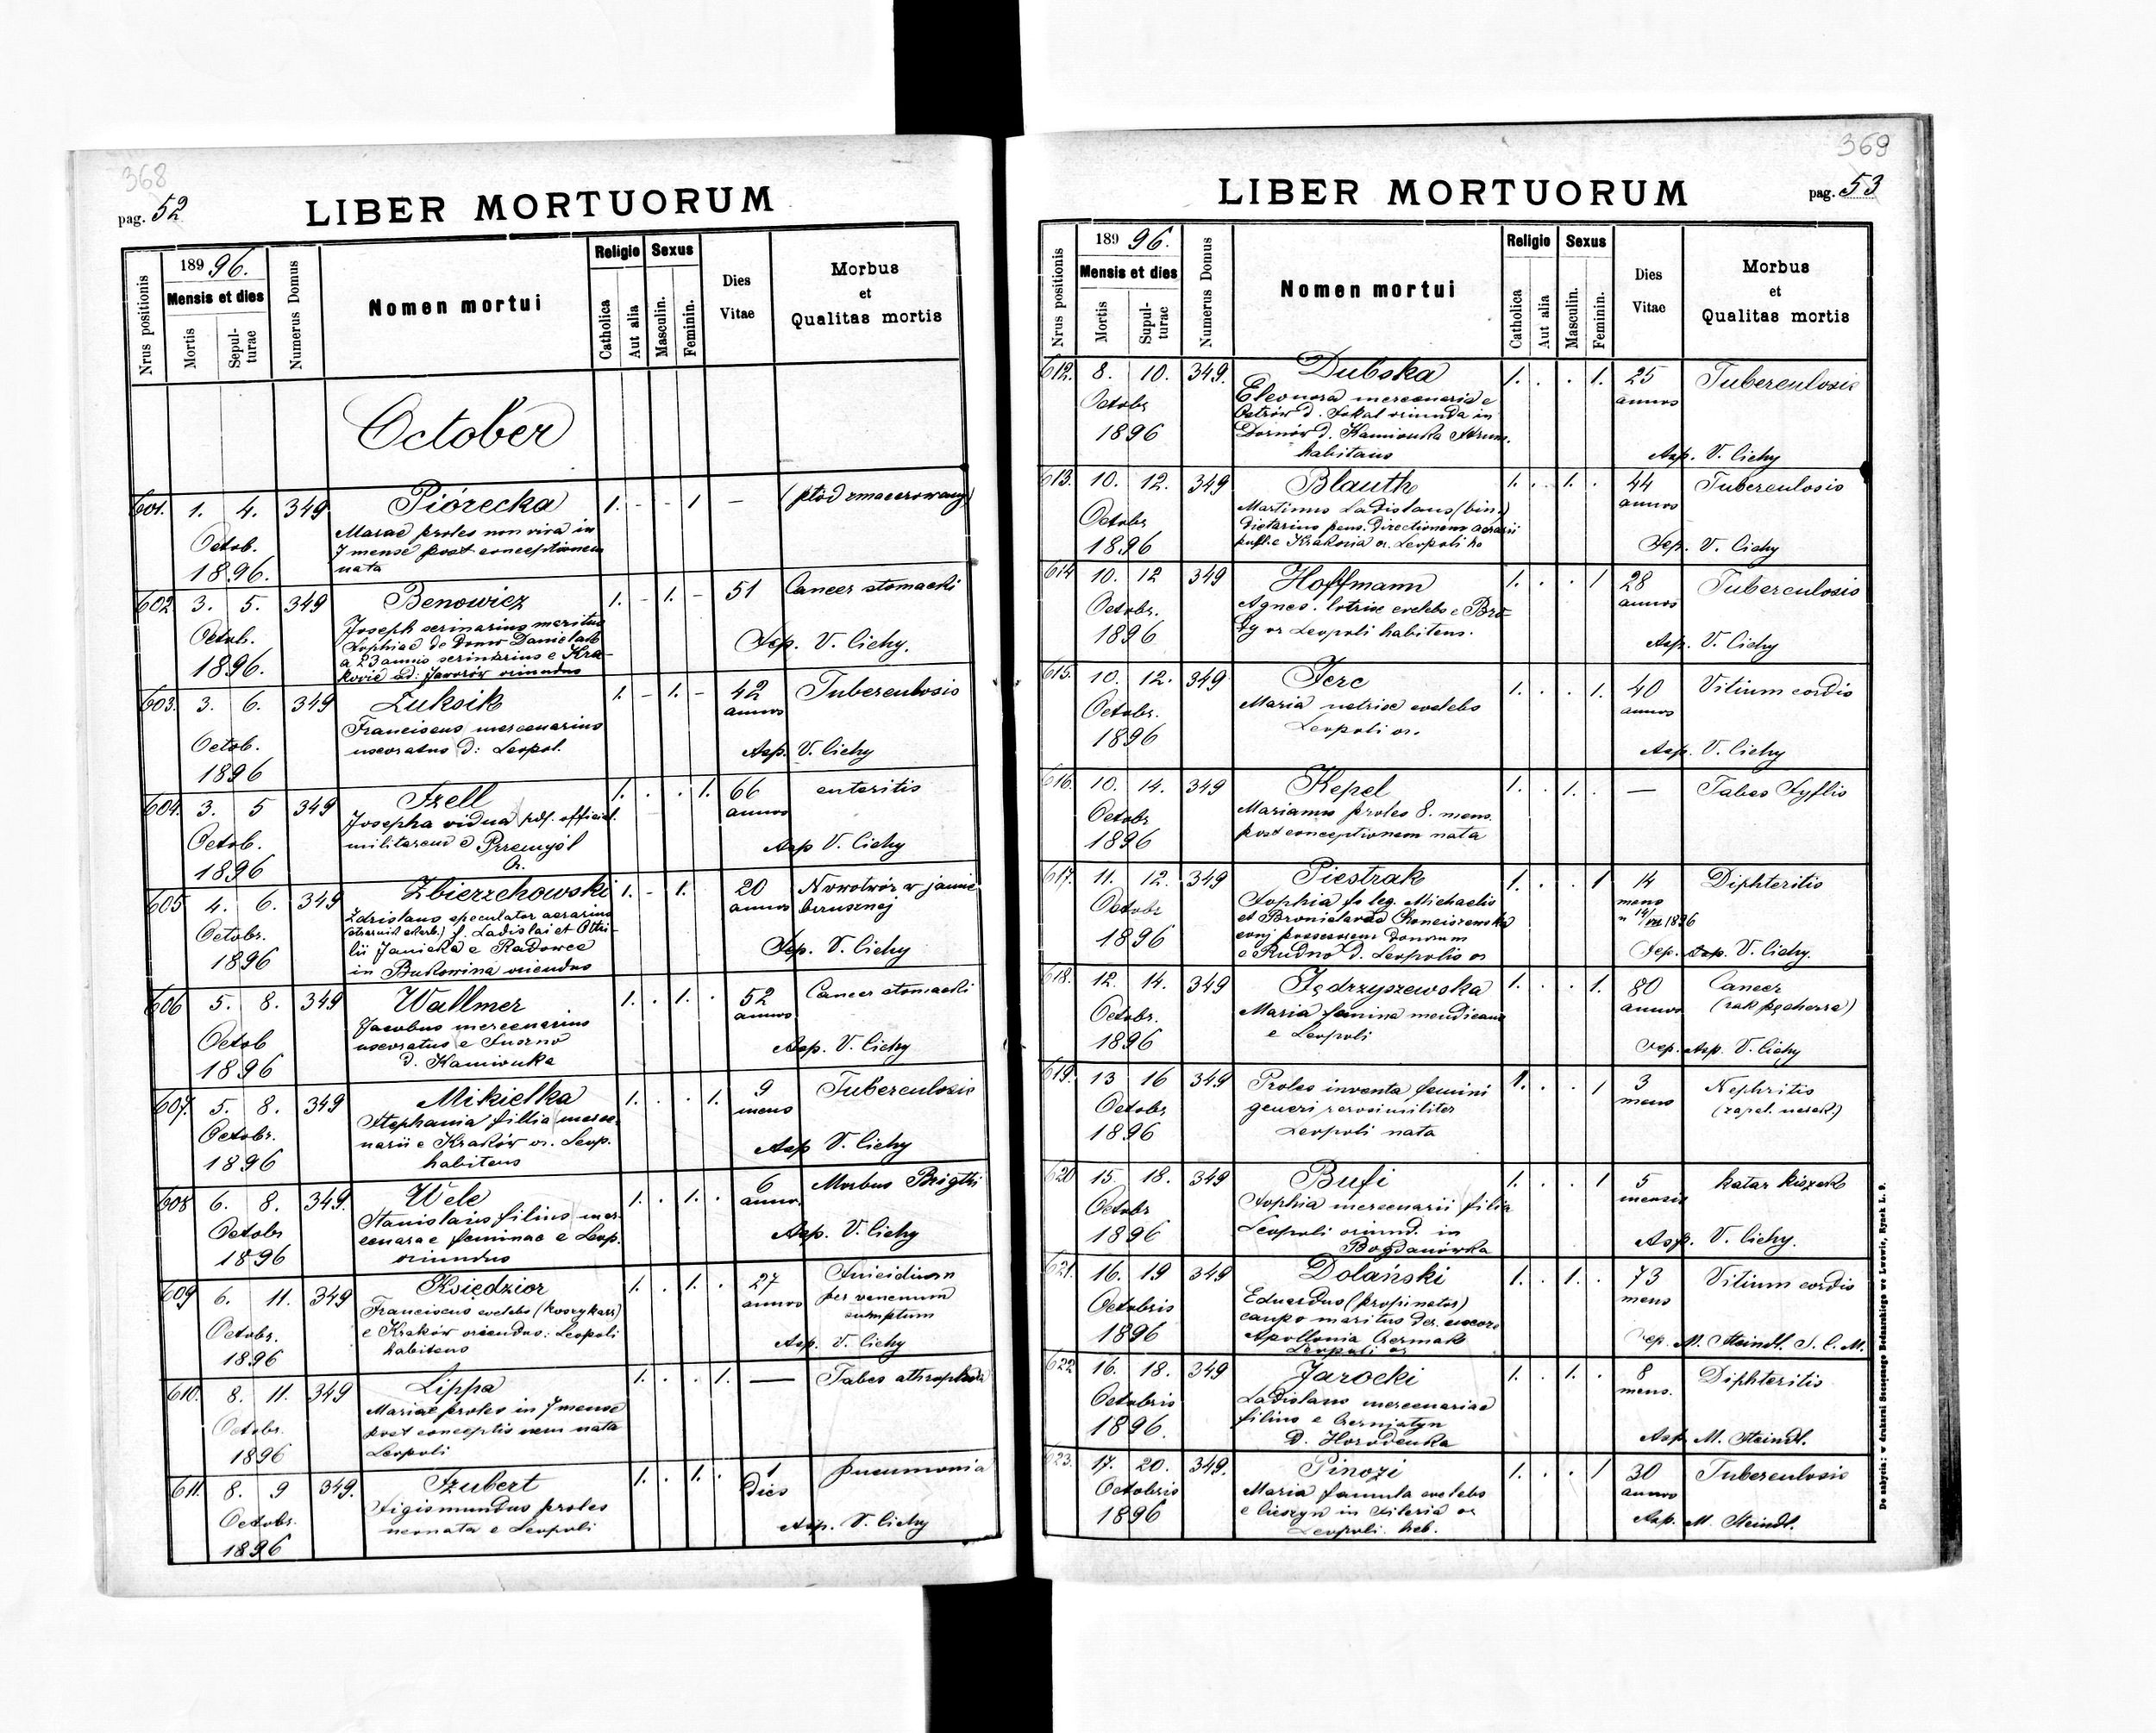 368
pag. 52
LIBER MORTUORUM
Nrus positionis
189 96.
Mensis et dies
Mortis
Sepul-
turae
Numerus Domus
Nomen mortui
Religio
Catholica
Aut alia
Sexus
Masculin.
Feminin.
Dies
Vitae
Morbus
et
Qualitas mortis
October
601. 1. 4. 349 Piórecka 1. - - 1 — (płód zmacerowany)
Octob. Mariae proles non viva in
1896. 7 mense post conceptionem
nata
602 3. 5. 349 Benowicz 1. - 1. - 51 Cancer stomachi
Octob. Joseph scrinarius maritus
Sophiae de Domo
1896. a 23 annis scrinarius e Kra-
kovie ad: Jaworów oriundus
Sep. V. Cichy.
603. 3. 6. 349 Luksik 1. - 1. - 42 Tuberculosis
annos
Octob. Franciscus mercenarius
1896 uxoratus d: Leopol.
Asp. V. Cichy
604. 3. 5 349 Szell 1. . . 1. 66 enteritis
annos
Octob. Josepha vidua offical.
1896 militarem e Przemyśl
Or.
Asp V. Cichy
605 4. 6. 349 Zbierzchowski 1. - 1. 20 Nowotwór w jamie
annos brzusznej
Octobr. Zdzislaus speculator aerarius
f. Ladislai et Otti-
lii Janicka e Radowce
1896 in Bukowina oriendus
Sep. V. Cichy
606 5. 8. 349 Wallmer 1. . 1. . 52 Cancer stomachi
annos
Octob Jacobus mercenarius
uxoratus e
1896 d. Kamionka
Asp. V. Cichy
607. 5. 8. 349 Mikielka 1. . . 1. 9 Tuberculosis
mens
Octobr. Stephania fillia merce-
narii e Kraków or. Leop.
1896 habitens
Asp V. Cichy
608 6. 8. 349. Wele 1. . 1. . 6 Morbus Brigthi
annos
Octobr Stanislaus filius mer-
cenarae feminae e Leop.
1896 oriundus
Asp. V. Cichy
609 6. 11. 349 Księdzior 1. . 1. . 27 Suicidium
annos per venenum
sumptum
Octobr. Franciscus coelebs (koszykarz)
e Kraków oriendus: Leopoli
1896 habitens
Asp. V. Cichy
610. 8. 11. 349 Lippa 1. . . 1. — Tabes
Octobr. Mariae proles in 7 mense
post nata
1896 Leopoli
611. 8. 9 349. Szubert 1. . 1. . 1 pneumonia
Dies
Octobr. Sigismundus proles
1896 neonata e Leopoli
Asp. V. Cichy
369
pag. 53
LIBER MORTUORUM
Nrus positionis
189 96.
Mensis et dies
Mortis
Supul-
turae
Numerus Domus
Nomen mortui
Religio
Catholica
Aut alia
Sexus
Masculin.
Feminin.
Dies
Vitae
Morbus
et
Qualitas mortis
612. 8. 10. 349. Dubska 1. . . 1. 25 Tuberculosis
annos
Octobr Eleonora mercenaria e
Ostrów d. Sokal oriunda in
1896 Dornów d. Kamionka Strum.
habitans
Asp. V. Cichy
613. 10. 12. 349 Blauth 1. . 1. . 44 Tuberculosis
annos
Octobr Martinus Ladislaus (bin.)
1896
Sep. V. Cichy
614 10. 12 349 Hoffmann 1. . . 1 28 Tuberculosis
annos
Octobr. Agnes. lotrix coelebs e Bro-
1896 dy or Leopoli habitens.
Asp. V. Cichy
615. 10. 12. 349 Jerc 1. . . 1. 40 Vitium cordis
annos
Octobr. Maria coelebs
1896 Leopoli or.
Asp. V. Cichy
616. 10. 14. 349 Kepel 1. . 1. . — Tabes Syflis
Octobr Marianus proles 8. mens.
1896 post conceptionem nata
617. 11. 12. 349 Piestrak 1. . . 1 14 Diphteritis
mens
Octobr Sophia fa leg. Michaelis
et Bronislavae
1896 conj possessorum bonorum
e Rudno D. Leopolis or
Sep. Asp. V. Cichy.
618. 12. 14. 349 Jędrzyszewska 1. . . 1. 80 Cancer
annos (rak pęcherza)
Octobr. Maria femina mendicans
1896 e Leopoli
Sep. Asp. V. Cichy
619. 13 16 349 Proles inventa femini 1. . . 1 3 Nephritis
mens (zapal. nerek.)
Octobr generi verosimiliter
1896 Leopoli nata
620 15. 18. 349 Bufi 1. . . 1 5 katar kiszek
mensis
Octobr Sophia mercenarii filia
1896 Leopoli oriund. in
Bogdanówka
Asp. V. Cichy.
621. 16. 19 349 Dolański 1. . 1. . 73 Vitium cordis
mens
Octobris Eduardus (propinator)
caupo maritus der. uxore
1896 Apollonia Czermak
Leopoli or
Sep. M. Steindl. S. C. M.
622 16. 18. 349 Jarocki 1. . 1. . 8 Diphteritis
mens.
Octobris Ladislaus mercenariae
1896. filius e Czerniatyn
D. Horodenka
Asp. M. Steindl.
623. 17. 20. 349. Pinozi 1. . . 1 30 Tuberculosis
annos
Octobris Maria famula coelebs
1896 e Cieszyn in Sileria or
Leopoli hab.
Asp. M. Steindl.
De nabycia: w drukarni Szczęsnego Bednarskiego we Lwowie, Rynek L. 9.